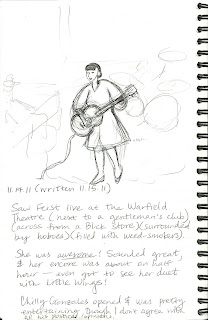 11.14.11 (written 11.15.11)
Saw Feist live at the Warfield
Theatre (next to a gentleman's club)
(across from a Blick Store)(surrounded
by hoboes)(filled with weed-smokers).
She was awesome! Sounded great,
& her encore was about an half
hour — even got to see her duet
with Little Wings!
Chilly Gonzales opened & was pretty
entertaining, though I don't agree with
all his political